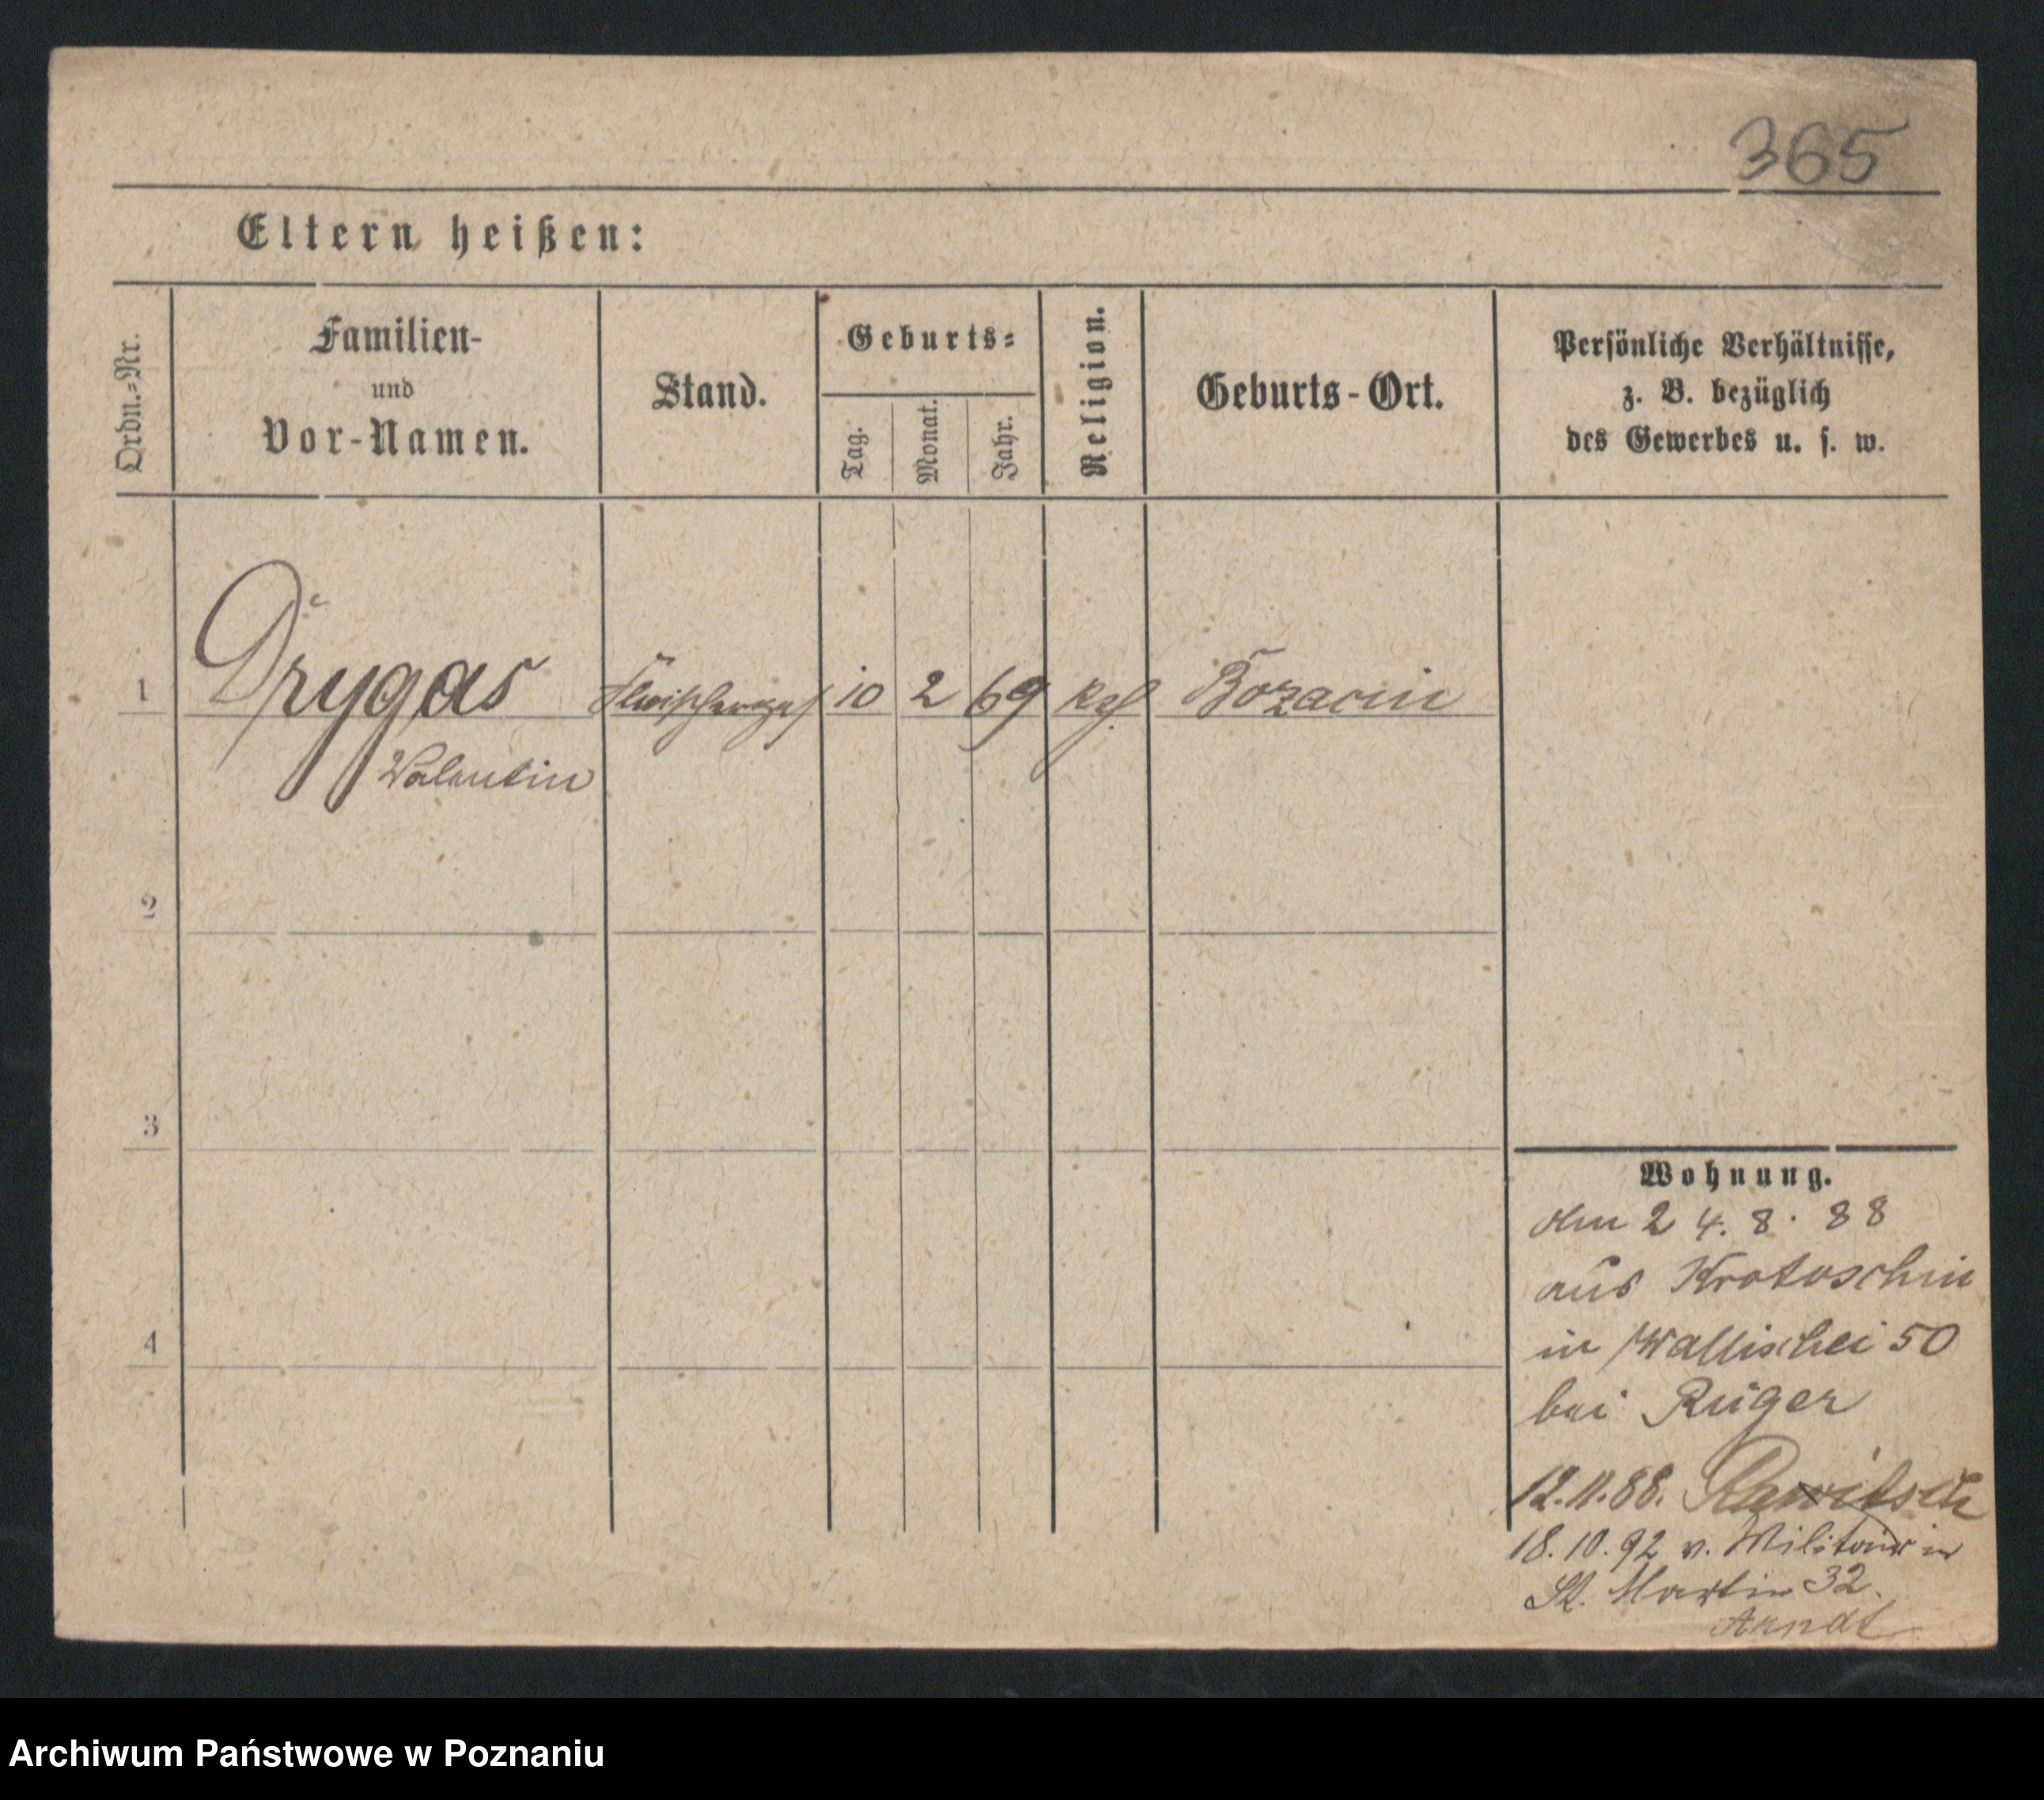 365
Eltern heißen:
Ordn.-Nr.
Familien-
und
Vor-Namen.
Stand.
Geburts-
Tag.
Monat.
Jahr.
Religion.
Geburts-Ort.
Persönliche Verhältnisse,
z. B. bezüglich
des Gewerbes u. s. w.
1 Drygas 10 2 69 Bozacin
Valentin
2
3
4
Wohnung.
Am 24.8.88
aus Krotoschin
in Wallischei 50
bei Rüger
12.11.88. Rawitsch
18.10.92 v. Militair in
St. Martin 32.
Arndt
Archiwum Państwowe w Poznaniu